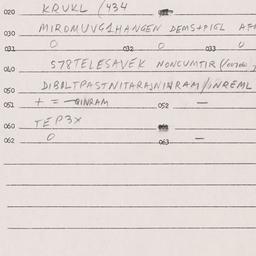 020 KRUKL (434
030 MIROMUVG1HANGEN DEMS+PIGL AF
031 0 032 0 033 0
040 S78TELESAVEK NONCUMTIR
050 DIBALTPASTNITARAJNINRAM/INREML
051 + = INRAM 052 —
060 TEP3X
062 0 063 —